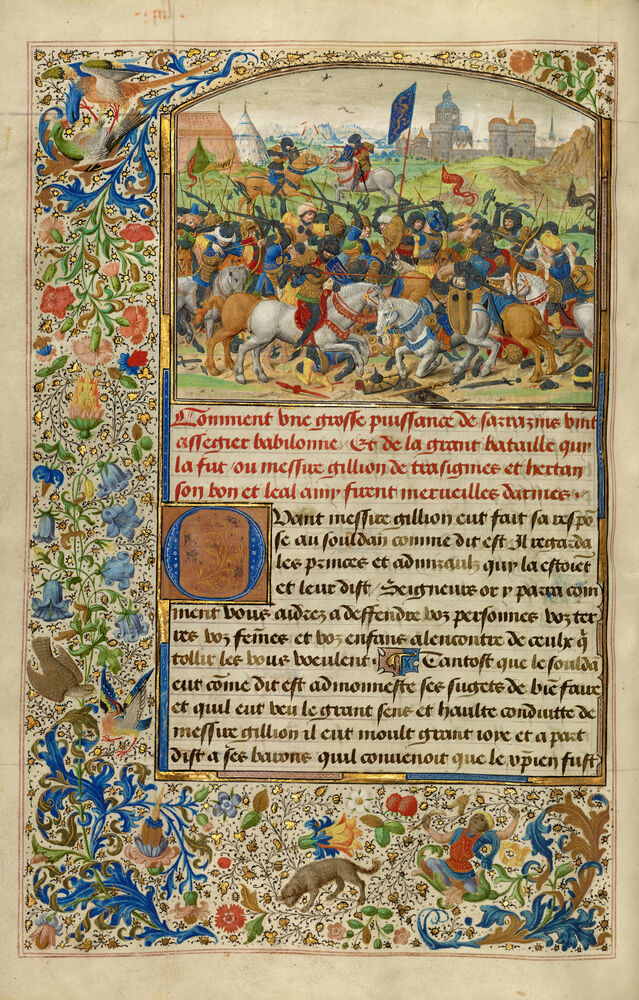 Comment vne grosse puissance de sarrazins vint
assegier babilonne / Et de la grant bataille quy
la fut / ou messire gillion de trasignies et hertan
son bon et leal amy firent merueilles darmes
Quant messire gillion eut fait sa respō
se au souldan comme dit est / Il regarda
les princes et admiraulz quy la estoiēt
et leur dist / Seigneurs or y parra com
ment vous aidrez a deffendre voz personnes voz ter
res voz fem̄es et voz enfans alencontre de ceulx q̄
tollir les vous veulent · Tantost que le soulda
eut com̄e dit est admonneste ses sugets de biē faire
et quil eut veu le grant sens et haulte conduitte de
messire gillion il eut moult grant ioye et a part
dist a ses barons quil conuenoit que le xp̄ien fust